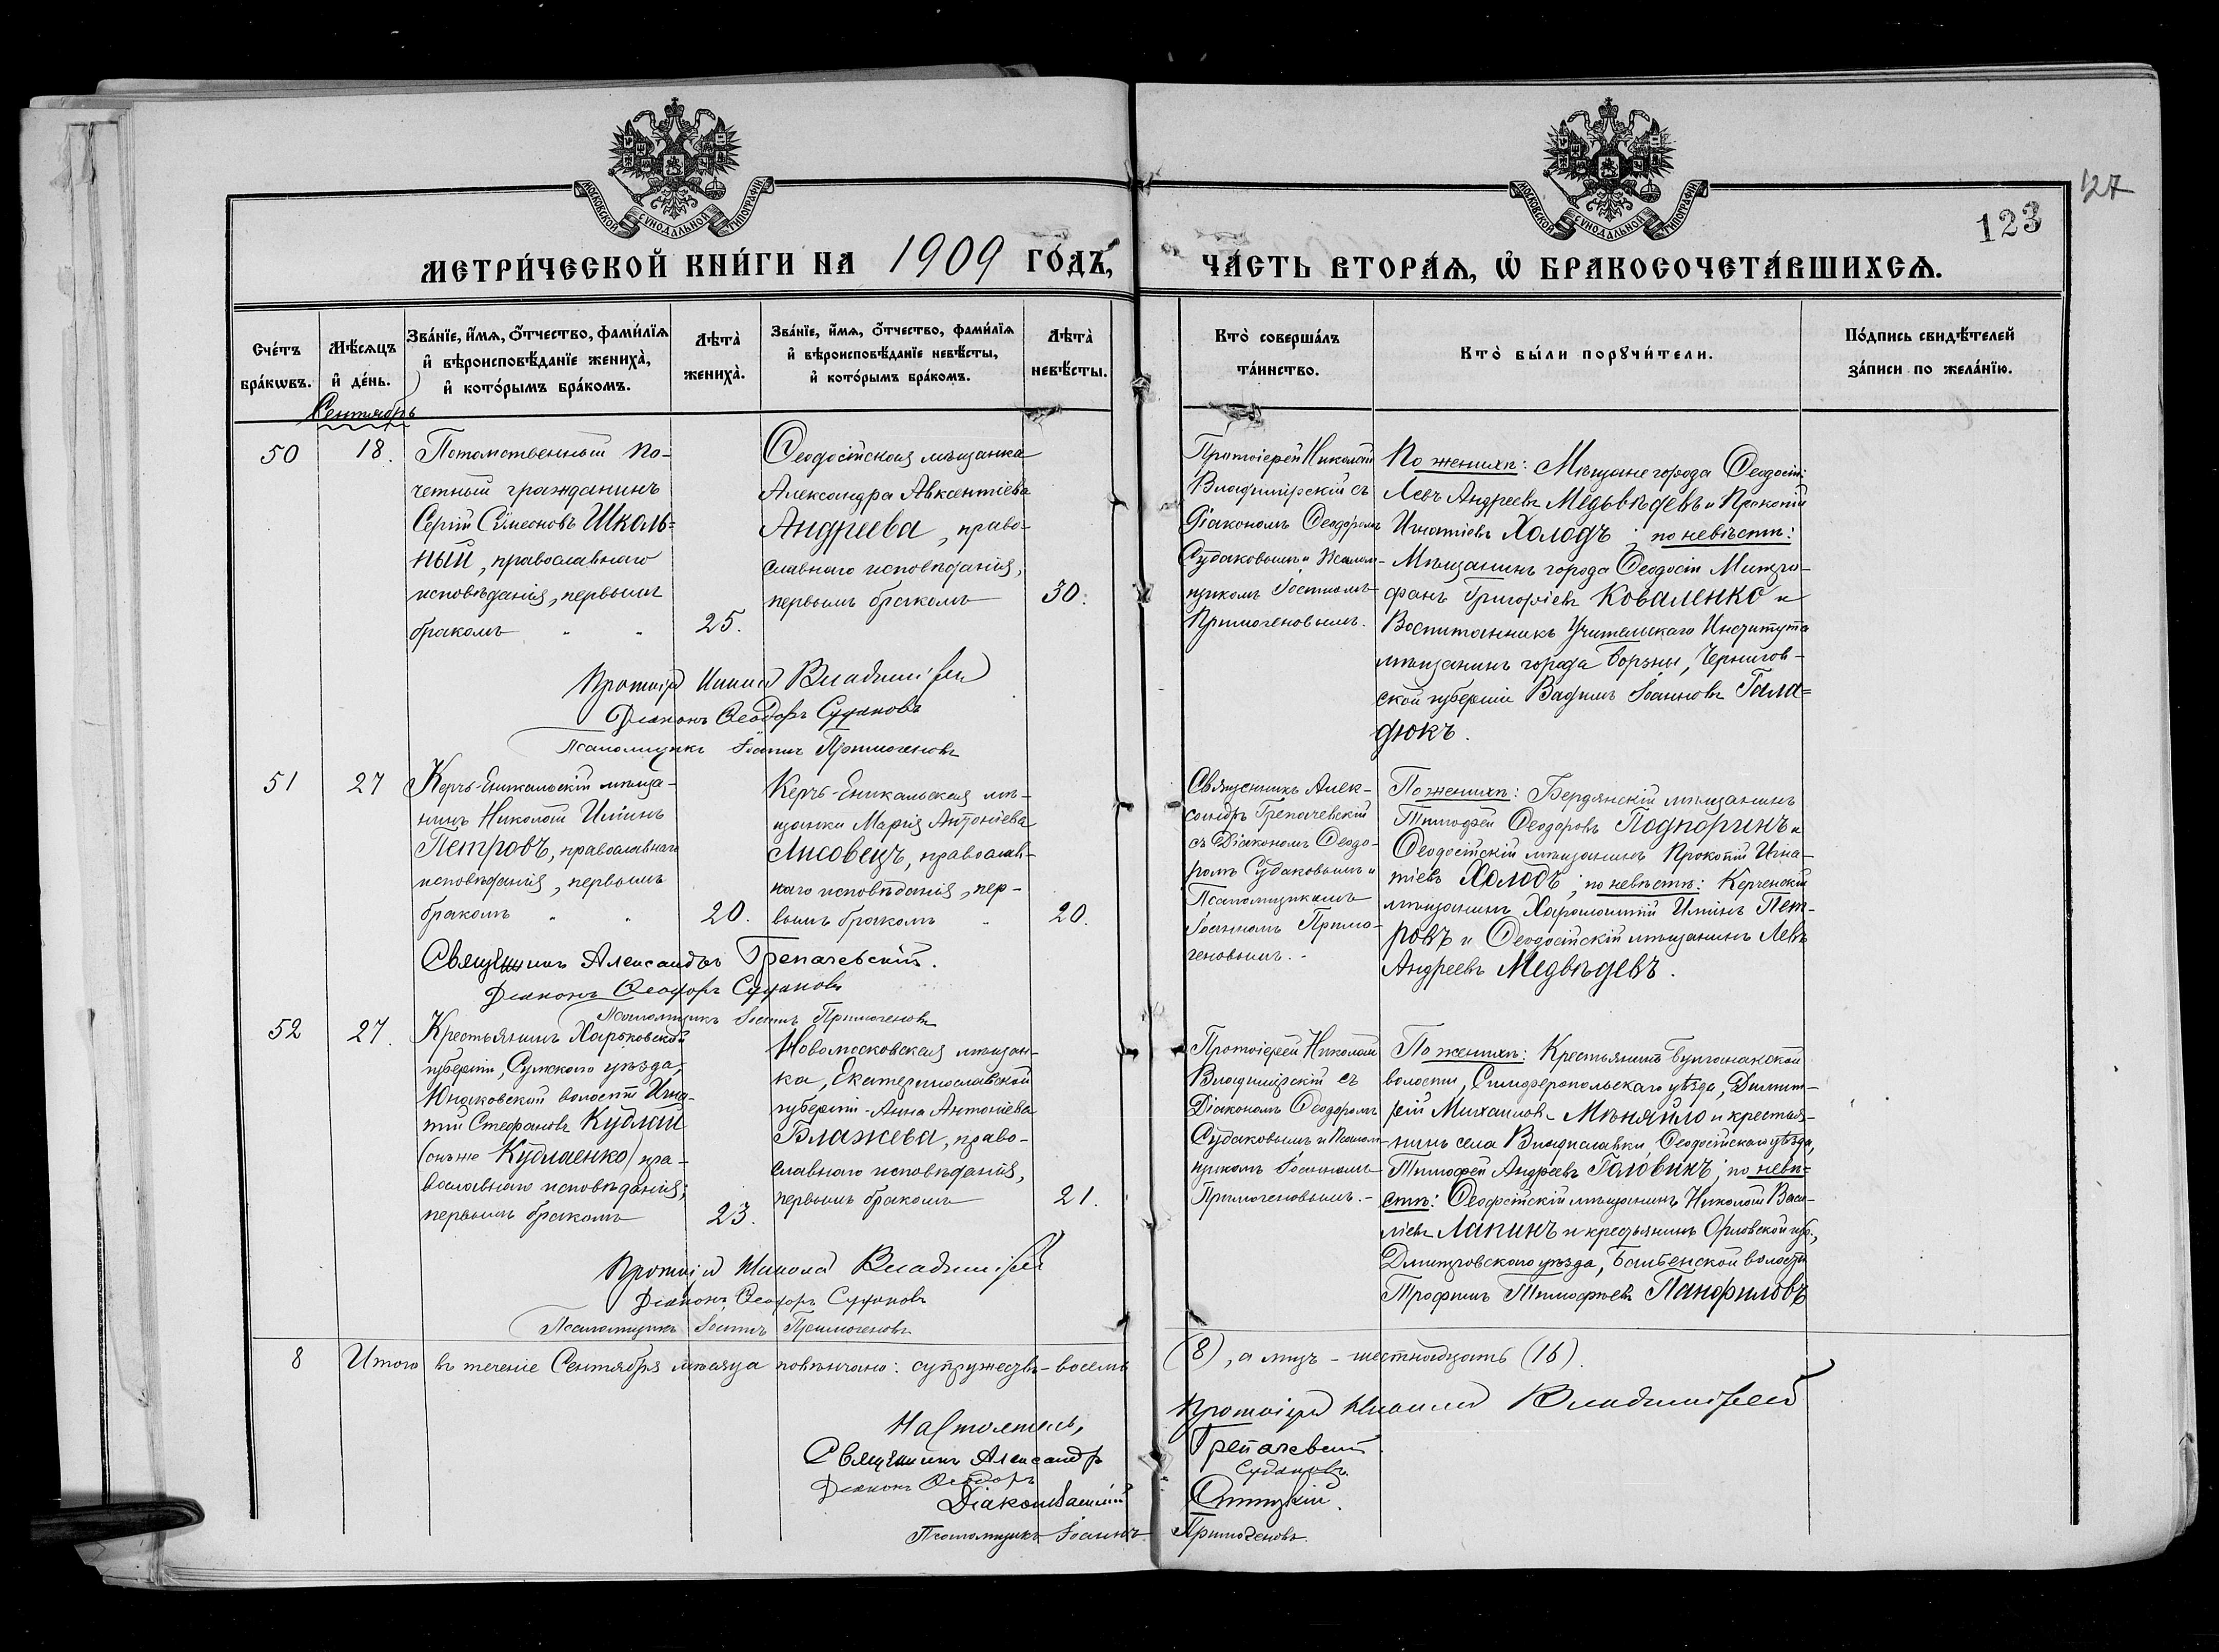 МОСКОВСКОЙ СУНОДАЛЬНОЙ ТИПОГРАФІИ
МОСКОВСКОЙ СУНОДАЛЬНОЙ ТИПОГРАФІИ
127
123
МЕТРИ́ЧЕСКОЙ КНИ́ГИ НА 1909 ГО́ДЪ,
ЧА́СТЬ ВТОРА́Ѧ, Ѡ҆ БРАКОСОЧЕТА́ВШИХСѦ.
Сче́тъ
бра́кѡвъ.
Мѣ́сѧцъ
и҆ де́нь.
Зва́нїе, и҆́мѧ, ѻ҆́тчество, фами́лїѧ
и҆ вѣроисповѣ́данїе жениха̀,
и҆ кото́рымъ бра́комъ.
Лѣта̀
жениха̀.
Зва́нїе, и҆́мѧ, ѻ҆́тчество, фами́лїѧ
и҆ вѣроисповѣ́данїе невѣ́сты,
и҆ кото́рымъ бра́комъ.
Лѣта̀
невѣ́сты.
Кто̀ соверша́лъ
та́инство.
Кто̀ бы́ли порꙋчи́тели.
По́дпись свидѣ́телей
за́писи по жела́нїю.
Сентябрь
50
18.
Потомственный по-
четный гражданинъ
Сергій Сѵмеоновъ Школь=
ный, православнаго
исповѣданія, первымъ
бракомъ " "
25.
Ѳеодосійская мѣщанка
Александра Авксентіева
Андреева, право-
славнаго исповѣданія,
первымъ бракомъ
30.
Протоіерей Николай
Владимірскій съ
Діакономъ Ѳеодоромъ
Судаковымъ и Псалом-
щикомъ Іоанномъ
Примогеновымъ.
По женихѣ: Мѣщане города Ѳеодосіи:
Левъ Андреевъ Медьвѣдевъ и Прокопій
Игнатіевъ Холодъ; по невѣстѣ:
Мѣщанинъ города Ѳеодосіи Митро-
фанъ Григоріевъ Коваленко и
Воспитанникъ Учительскаго Института
мѣщанинъ города Борзны, Чернигов-
ской губерніи Вадимъ Іоанновъ Гала=
дюкъ.
Протоіерей Николай Владимірскій
Діаконъ Ѳеодоръ Судаковъ
Псаломщикъ Іоаннъ Примогеновъ
51
27
Керчь-Еникальскій мѣща-
нинъ Николай Иліинъ
Петровъ, православнаго
исповѣданія, первымъ
бракомъ " "
20.
Керчь-Еникальская мѣ-
щанка Марія Антоніева
Лисовецъ, православ-
наго исповѣданія, пер-
вымъ бракомъ "
20.
Священникъ Алек-
сандръ Грепачевскій
съ Діакономъ Ѳеодо-
ромъ Судаковымъ и
Псаломщикомъ
Іоанномъ Примо-
геновымъ.-
По женихѣ: Бердянскій мѣщанинъ
Тимофей Ѳеодоровъ Подпоринъ и
Ѳеодосійскій мѣщанинъ Прокопій Игна-
тіевъ Холодъ; по невѣстѣ: Керченскій
мѣщанинъ Харалампій Иліинъ Пет-
ровъ и Ѳеодосійскій мѣщанинъ Левъ
Андреевъ Медвѣдевъ.
Священникъ Александръ Грепачевскій.
Діаконъ Ѳеодоръ Судаковъ
Псаломщикъ Іоаннъ Примогеновъ
52
27.
Крестьянинъ Харьковской
губерніи, Сумскаго уѣзда,
Юнаковской волости Игна-
тій Стефановъ Кублай
(онъ же Кублаенко) пра-
вославнаго исповѣданія,
первымъ бракомъ
23.
Новомосковская мѣщан-
ка, Екатеринославской
губерніи - Анна Антоніева
Блажева, право-
славнаго исповѣданія,
первымъ бракомъ
21.
Протоіерей Николай
Владимірскій съ
Діакономъ Ѳеодоромъ
Судаковымъ и Псалом-
щикомъ Іоанномъ
Примогеновымъ.-
По женихѣ: Крестьянинъ
волости, Симферопольскаго уѣзда, Димит-
рій Михаиловъ Мѣняйло и крестья-
нинъ села Владиславки, Ѳеодосійскаго уѣзда,
Тимофей Андреевъ Головинъ; по невѣ=
стѣ: Ѳеодосійскій мѣщанинъ Николай Васи-
ліевъ Лапинъ и крестьянинъ Орловской губ.,
Дмитровскаго уѣзда, волости
Трофимъ Тимофѣевъ Панфиловъ
Протоіерей Николай Владимірскій
Діаконъ Ѳеодоръ Судаковъ
Псаломщикъ Іоаннъ Примогеновъ
8 Итого въ теченіе Сентября мѣсяца повѣнчано: супружествъ - восемь (8), а лицъ - шестнадцать (16).
Настоятель, Протоіерей Николай Владимірскій
Священникъ Александръ Грепачевскій
Діаконъ Ѳеодоръ Судаковъ
Діаконъ
Псаломщикъ Іоаннъ Примогеновъ.